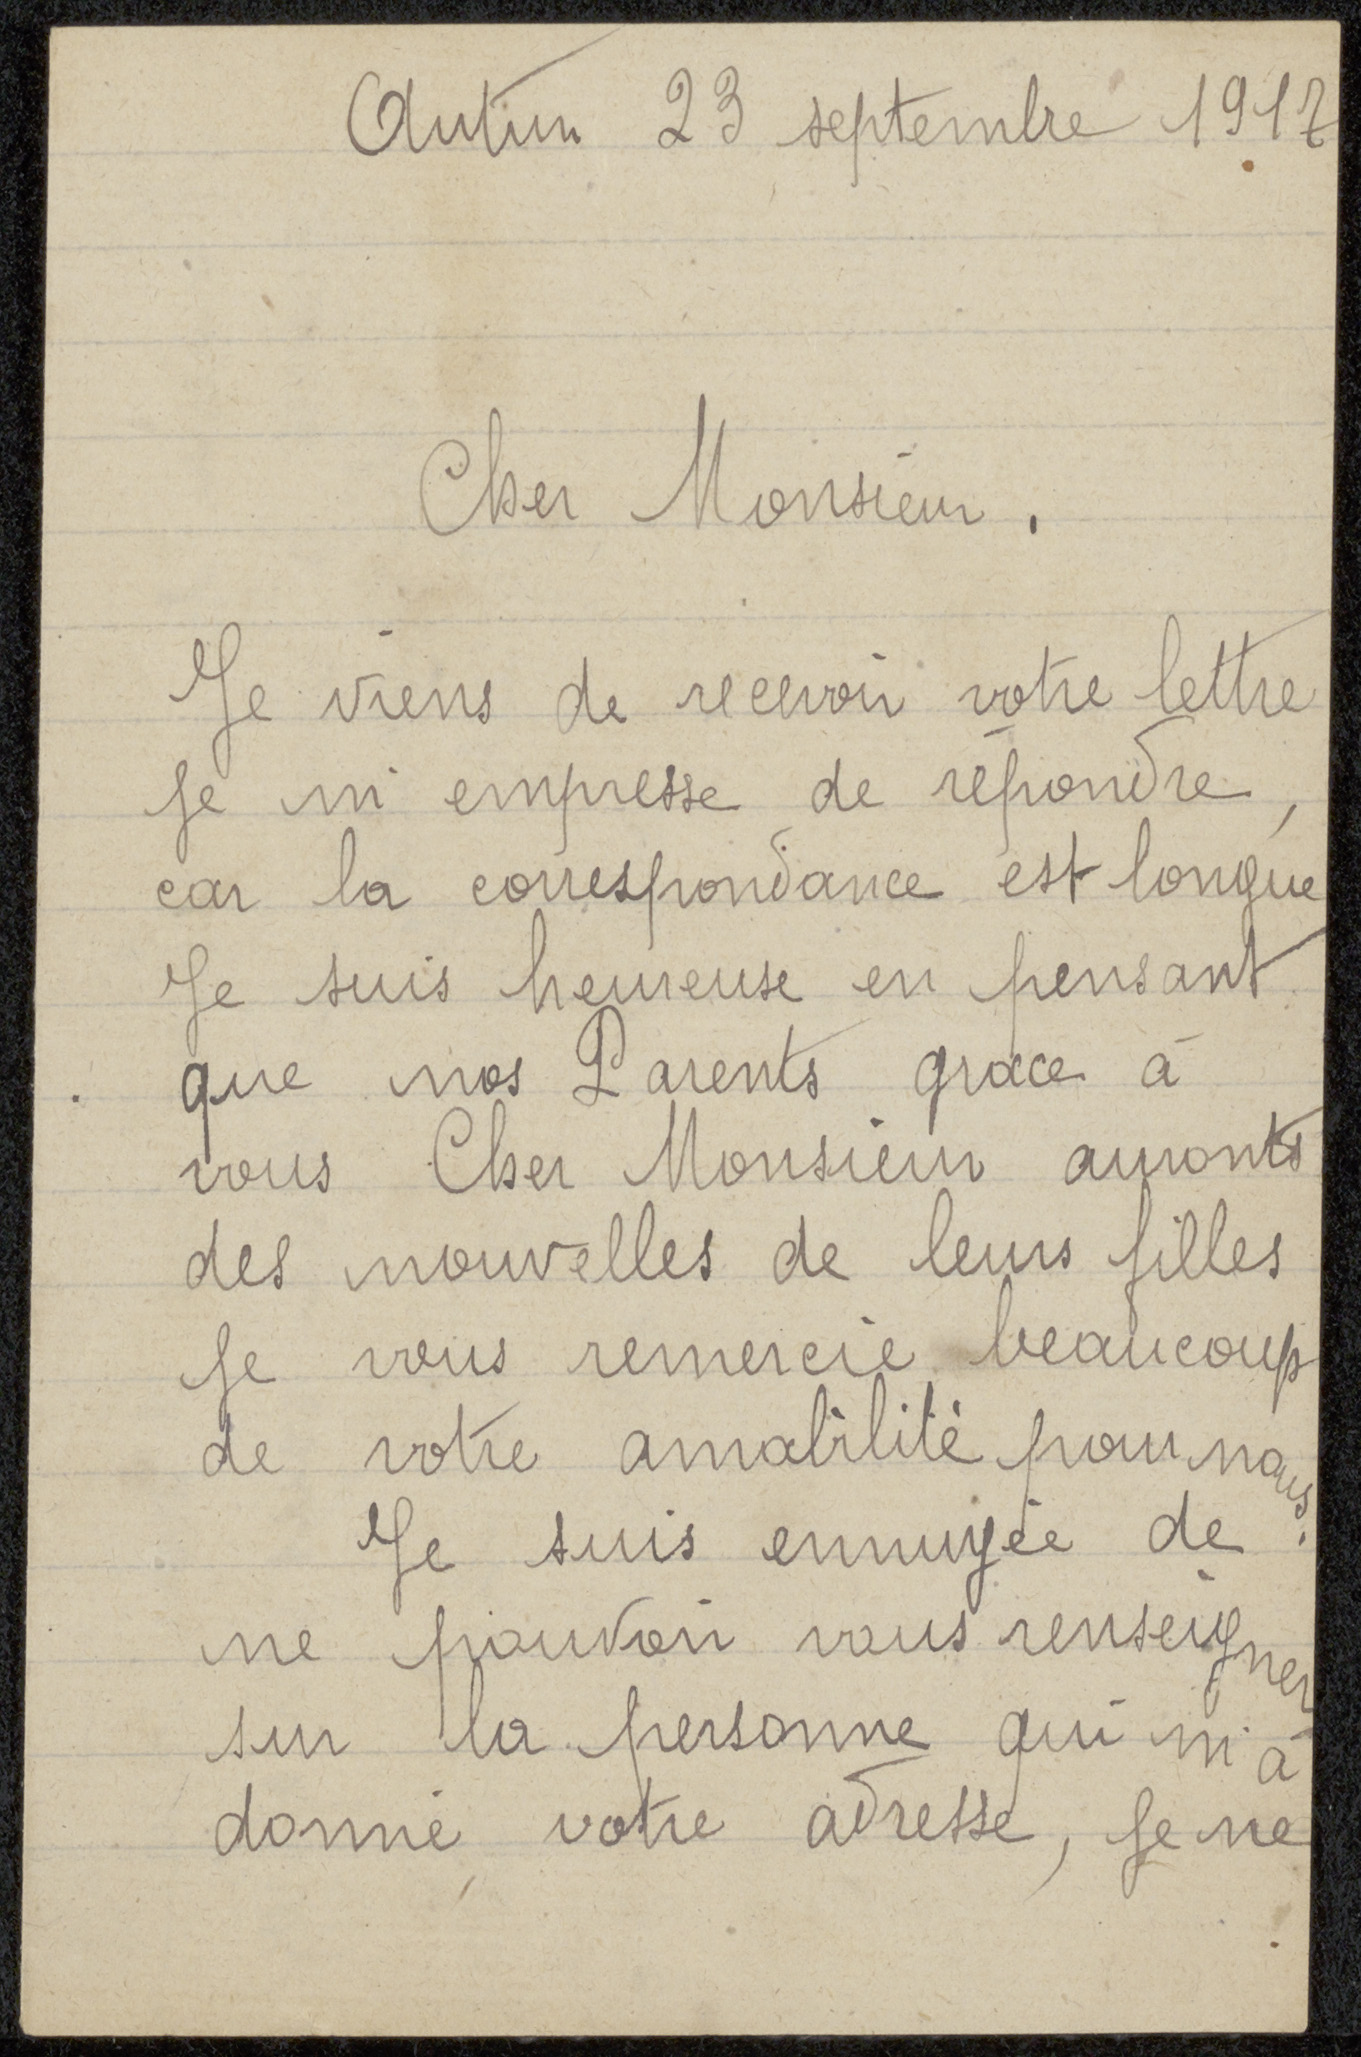 Autun 23 septembre 1917
Cher Monsieur.
Je viens de recevoir votre lettre
Je m'empresse de répondre,
car la correspondance est longue
Je suis heureuse en pensant
que nos Parents grace à
vous Cher Monsieur auronts
des nouvelles de leurs filles
Je vous remercie beaucoup
de votre amabilité pour nous.
Je suis ennuyée de
ne pouvoir vous renseigner
sur la personne qui m'à
donné votre adresse, Je ne